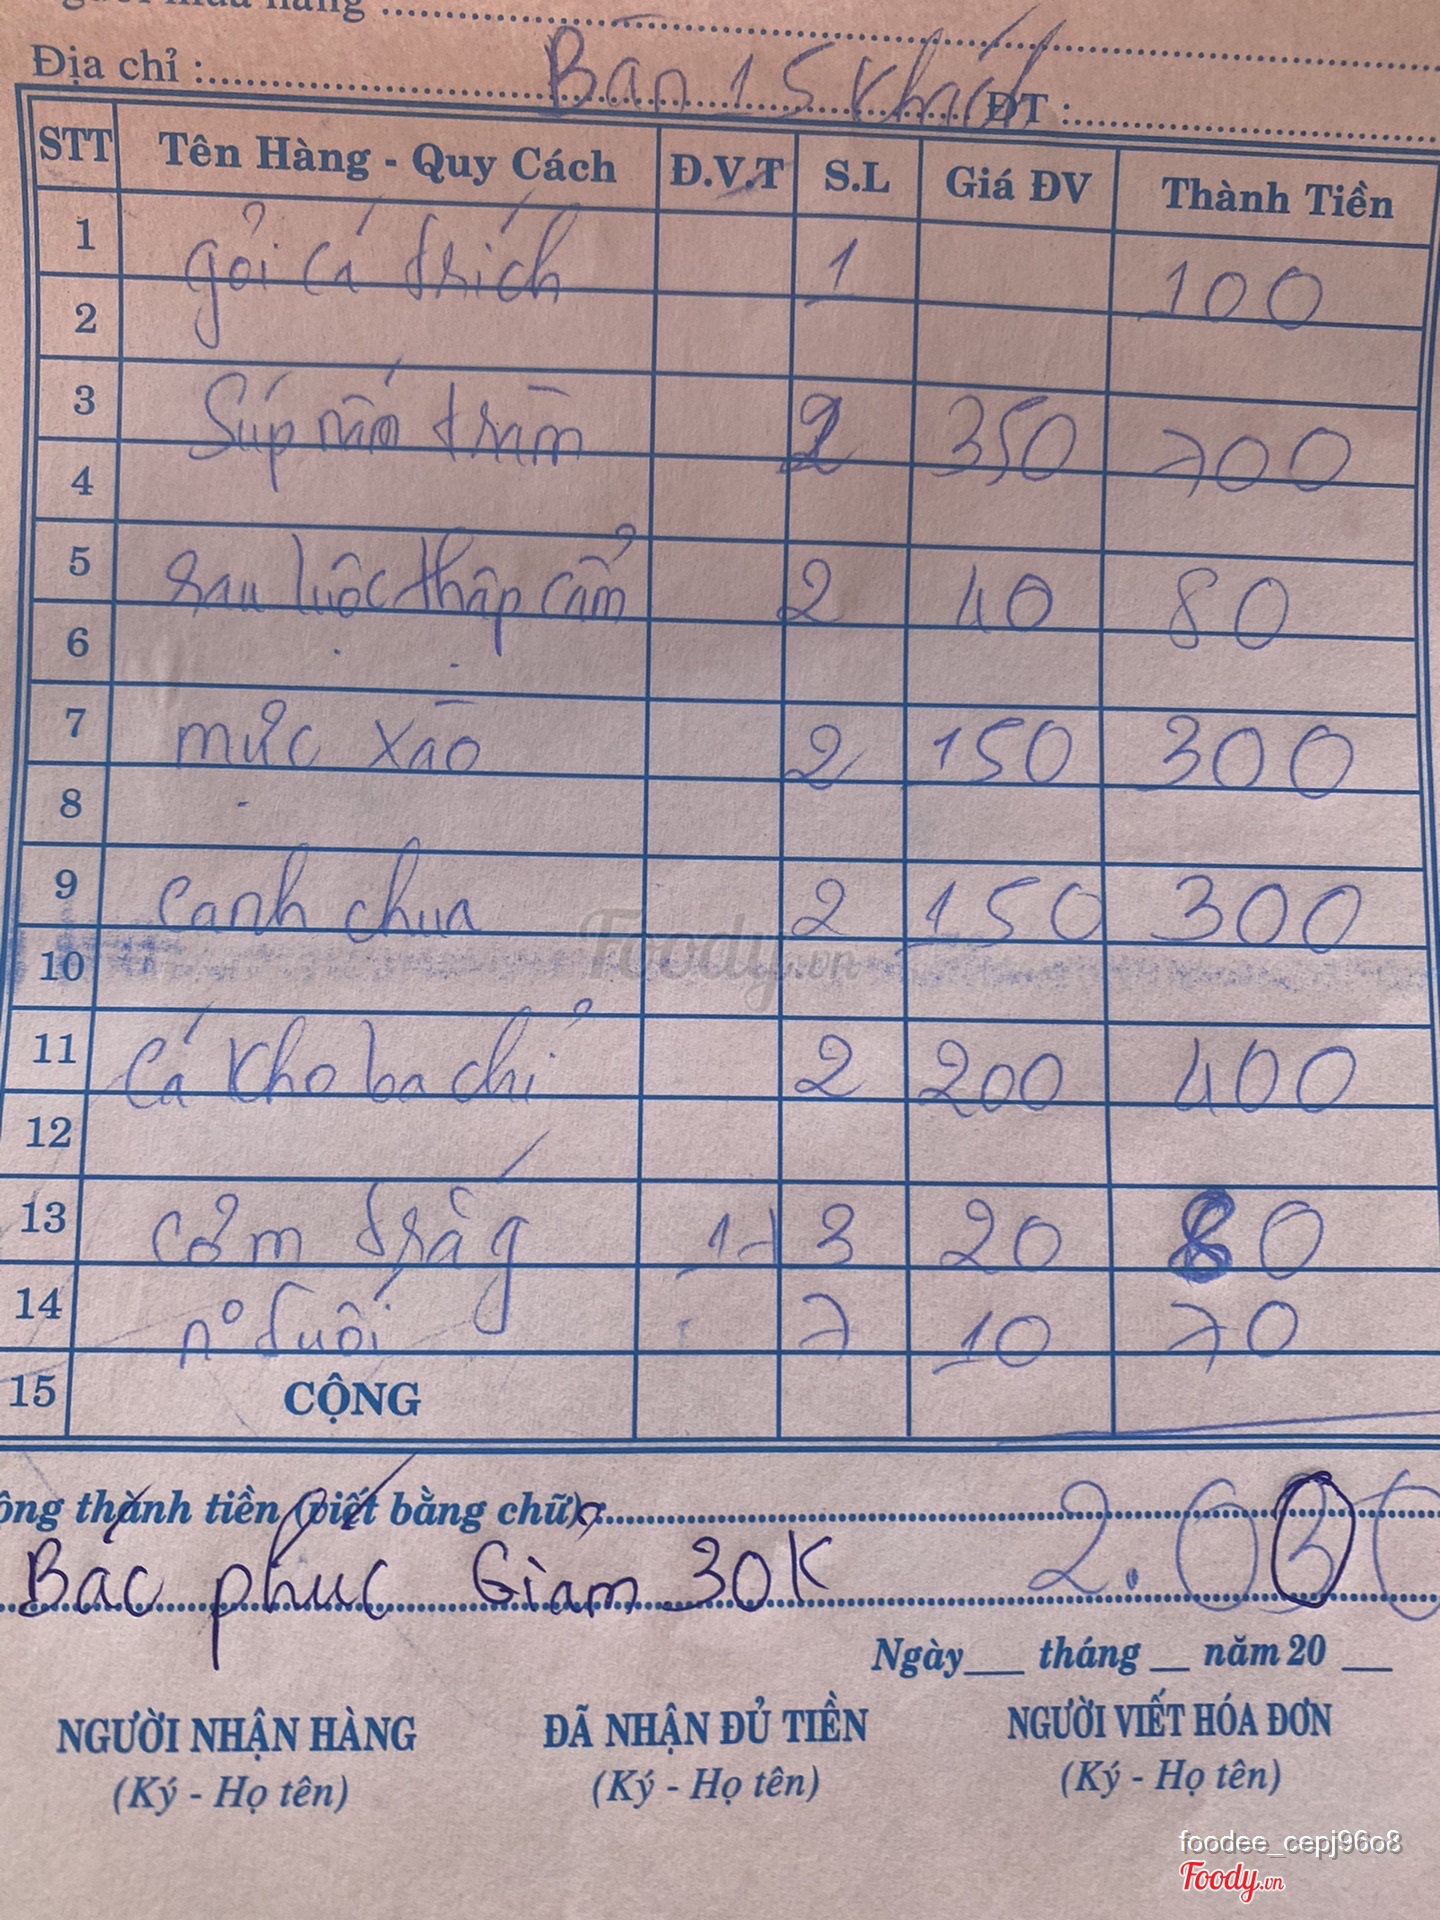 Địa chỉ : Bàn 15 khách ĐT :
STT Tên Hàng - Quy Cách Đ.V.T S.L Giá ĐV Thành Tiền
1 gỏi cá trích 1 100
2
3 Súp nấm tràm 2 350 700
4
5 rau luộc thập cẩm 2 40 80
6
7 mực xào 2 150 300
8
9 canh chua 2 150 300
10
11 Cá kho ba chỉ 2 200 400
12
13 cơm trắg 3 20 80
14 n° suối 7 10 70
15 CỘNG
thành tiền (viết bằng chữ) :
Bác phúc Giảm 30K
Ngày___ tháng __ năm 20 __
NGƯỜI NHẬN HÀNG ĐÃ NHẬN ĐỦ TIỀN NGƯỜI VIẾT HÓA ĐƠN
(Ký - Họ tên) (Ký - Họ tên) (Ký - Họ tên)
Foody.vn
foodee_cepj96o8
Foody.vn